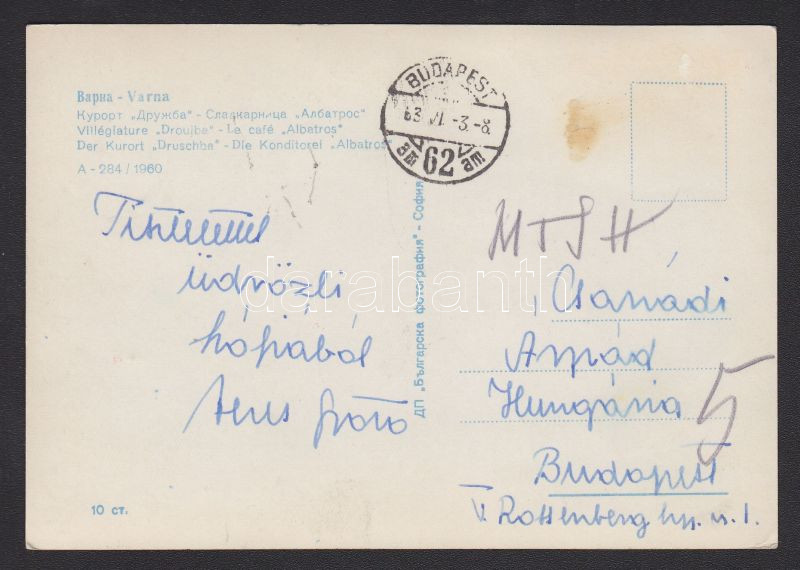 Варна - Varna
Курорт „Дружба" - Сладкарница „Албатрос"
Villégiature „Droujba" - Le café „Albatros"
Der Kurort „Druschba" - Die Konditorei „Albatros"
A - 284 / 1960
BUDAPEST
63 VI -3.-8
62
Tisztelettel
üdvözli
ДП „Българска фотография" - София
darabanth
MTSH
Csanádi
Árpád
Hungária
5
Budapest
V. Rosenberg hp. u. 1.
10 ст.